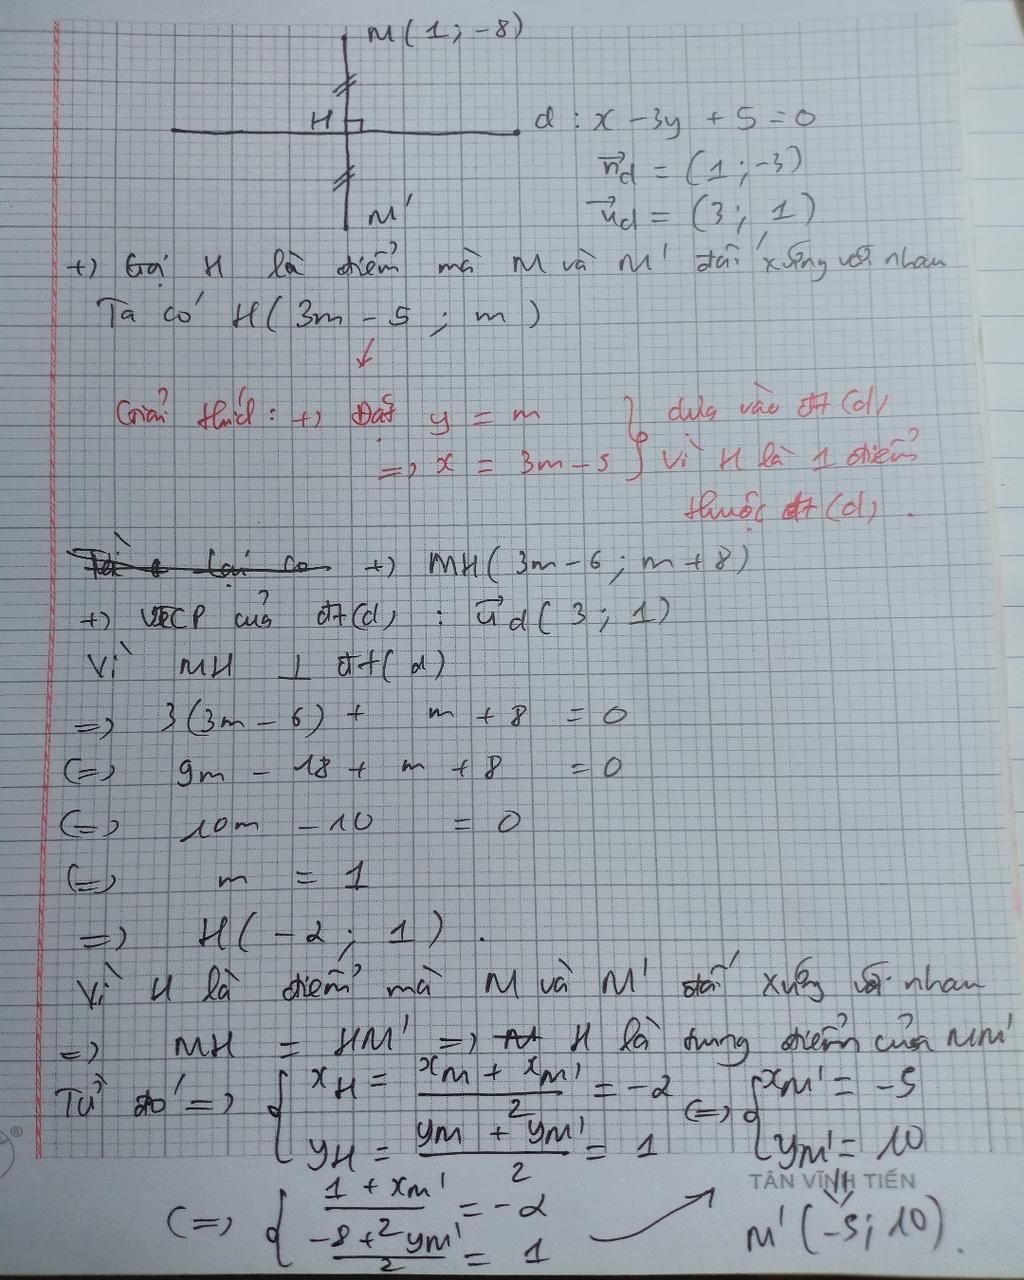 M(1; -8)
H
d : x - 3y + 5 = 0
n⃗d = (1; -3)
M'
u⃗d = (3; 1)
+) Gọi H là điểm mà M và M' đối xứng với nhau
Ta có H(3m - 5; m)
↓
Giải thích: +) Đặt y = m } dựa vào đt (d)
=> x = 3m - 5 } vì H là 1 điểm
thuộc đt (d).
+) MH(3m - 6; m + 8)
+) VTCP của đt(d) : u⃗d(3; 1)
Vì MH ⊥ đt(d)
=> 3(3m - 6) + m + 8 = 0
(=) 9m - 18 + m + 8 = 0
(=) 10m - 10 = 0
(=) m = 1
=> H(-2; 1).
Vì H là điểm mà M và M' đối xứng với nhau
=> MH = HM' => H là trung điểm của MM'
Từ đó => { xH = (xM + xM')/2 = -2 (=) { xM' = -5
yH = (yM + yM')/2 = 1 yM' = 10
TÂN VĨNH TIẾN
(=) { (1 + xM')/2 = -2
(-8 + yM')/2 = 1 → M'(-5; 10).